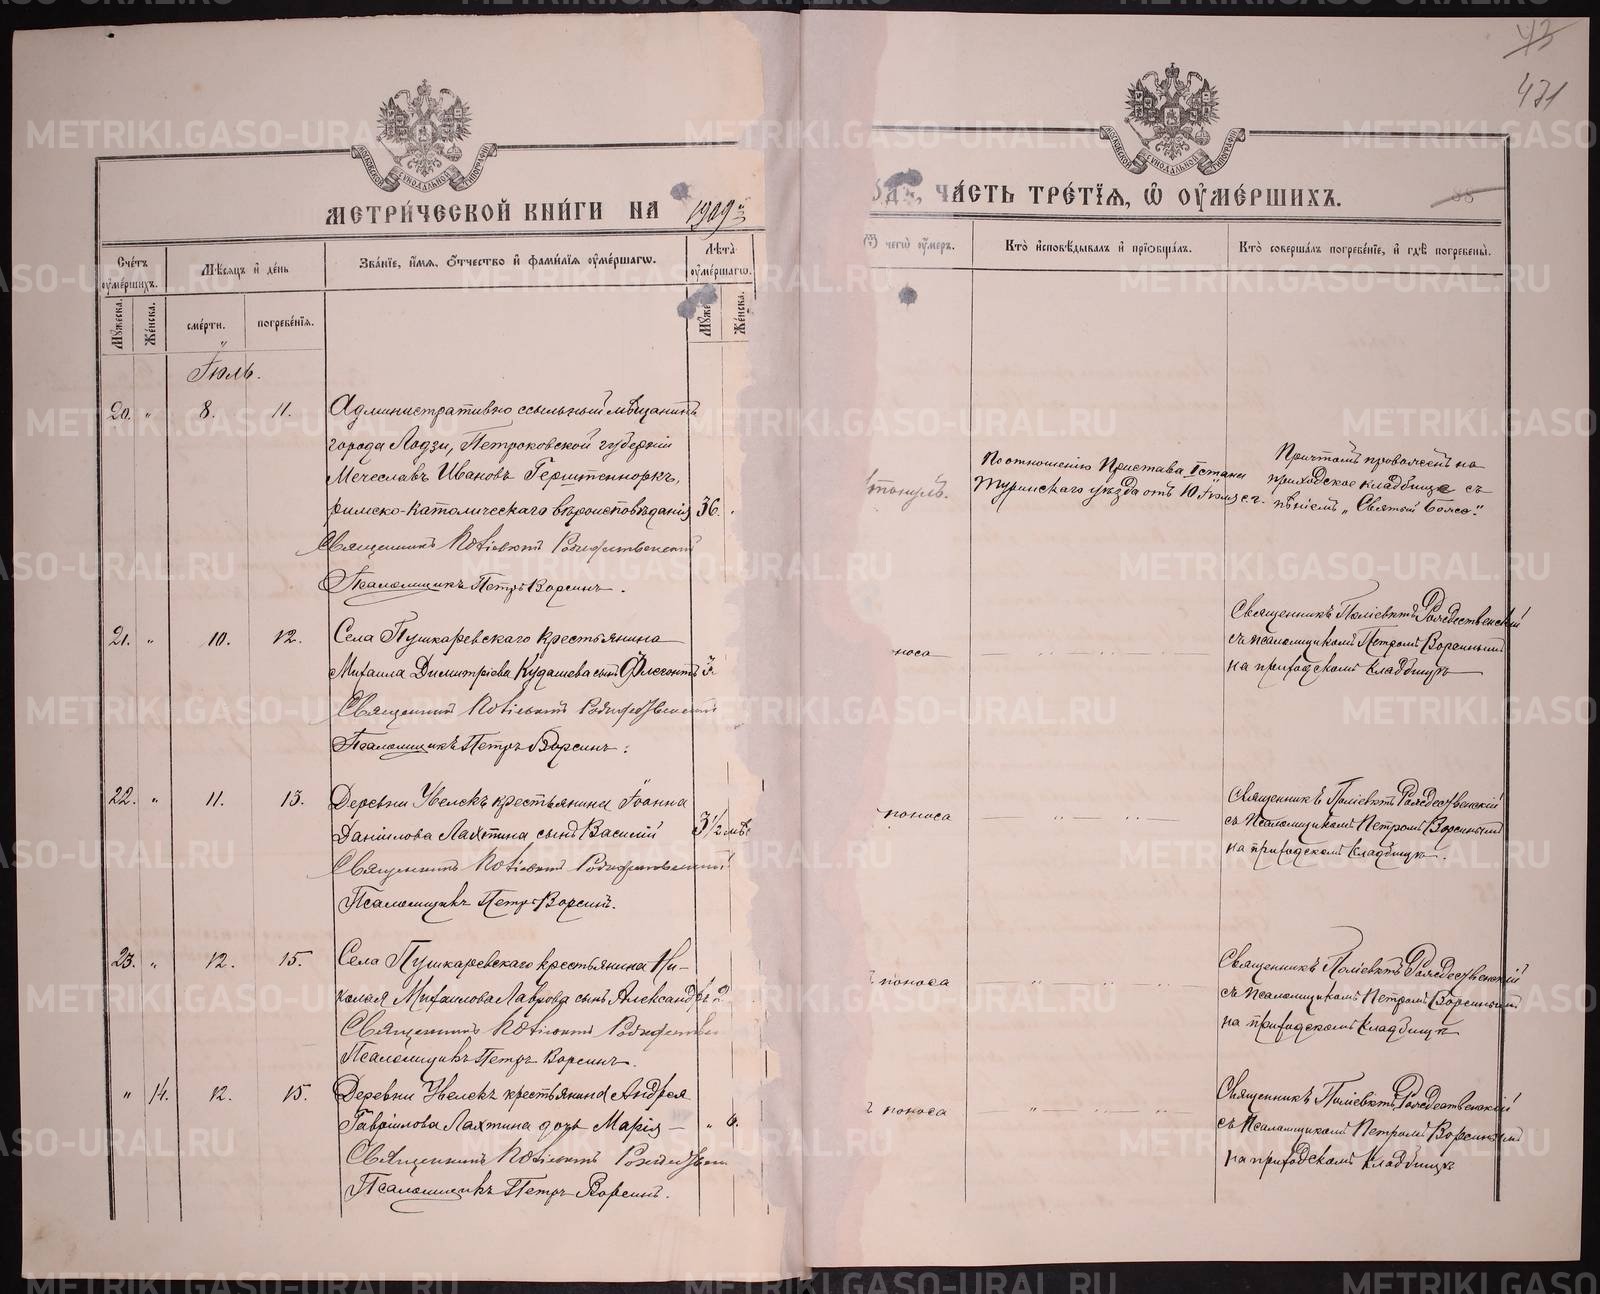 43
471
МЕТРИ́ЧЕСКОЙ КНИ́ГИ НА 1909й
ЧА́СТЬ ТРЕ́ТІѦ, Ѿ ОУМЕ́РШИХЪ.
Сче́тъ оуме́ршихъ.
Мѣ́сѧцъ и де́нь
Зва́нїе, и́мѧ, о́тчество и фами́лїѧ оуме́ршагѡ.
Лѣ́та оуме́ршагѡ.
Ѿ чегѡ̀ оу́меръ.
Кто̀ и҆сповѣ́дывалъ и҆ прїѡбща́лъ.
Кто̀ соверша́лъ погребе́нїе, и҆ гдѣ̀ погребены̀.
Му́жеска.
Же́нска.
сме́рти.
погребе́нїѧ.
Му́же
Же́нска.
Іюль.
20. " 8. 11. Административно ссыльный мѣщанинъ
города Лодзи, Петроковской губерніи
Мечеславъ Ивановъ
римско-католическаго вѣроисповѣданія 36.
Священникъ Поліевктъ Рождественскій
Псаломщикъ Петръ Ворсинъ.
По отношенію Пристава стана
Туринскаго уѣзда отъ 10 Іюля с.г.
Причтомъ провожденъ на
приходское кладбище съ
пѣніемъ „Святый Боже."
21. " 10. 12. Села Пушкаревскаго крестьянина
Михаила Димитріева Кудашева сынъ Флегонтъ
Священникъ Поліевктъ Рождественскій
Псаломщикъ Петръ Ворсинъ.
поноса
Священникъ Поліевктъ Рождественскій
съ псаломщикомъ Петромъ Ворсинымъ
на приходскомъ кладбищѣ
22. " 11. 13. Деревни Увелекъ крестьянина Іоанна
Даніилова Лахтина сынъ Василій 3½ мѣс
Священникъ Поліевктъ Рождественскій
Псаломщикъ Петръ Ворсинъ.
поноса
Священникъ Поліевктъ Рождественскій
съ Псаломщикомъ Петромъ Ворсинымъ
на приходскомъ кладбищѣ.
23. " 12. 15. Села Пушкаревскаго крестьянина Ни-
колая Михаилова Лаврова сынъ Александръ 2
Священникъ Поліевктъ Рождествен
Псаломщикъ Петръ Ворсинъ.
поноса
Священникъ Поліевктъ Рождественскій
съ Псаломщикомъ Петромъ Ворсинымъ
на приходскомъ кладбищѣ
" 14. 12. 15. Деревни Увелекъ крестьянина Андрея
Гавріилова Лахтина дочь Марія — " 6.
Священникъ Поліевктъ Рождествен
Псаломщикъ Петръ Ворсинъ.
поноса
Священникъ Поліевктъ Рождественскій
съ Псаломщикомъ Петромъ Ворсинымъ
на приходскомъ кладбищѣ
METRIKI.GASO-URAL.RU